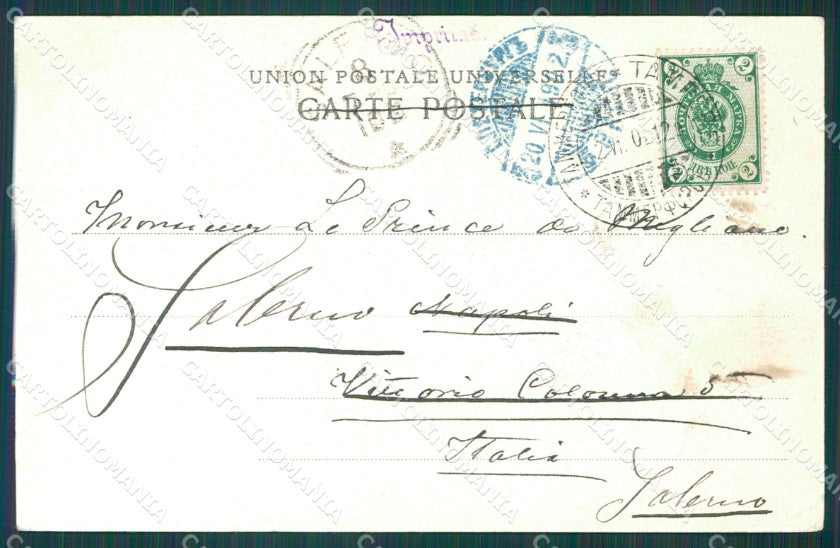 Imprimé
UNION POSTALE UNIVERSELLE
CARTE POSTALE
2
2
2
ДВѢ КОП
ТАММЕРФОРСЪ
Monsieur Le Prince de Migliano.
Salerno Napoli
Vittorio Colonna 5
Italia
Salerno
CARTOLINOMANIA